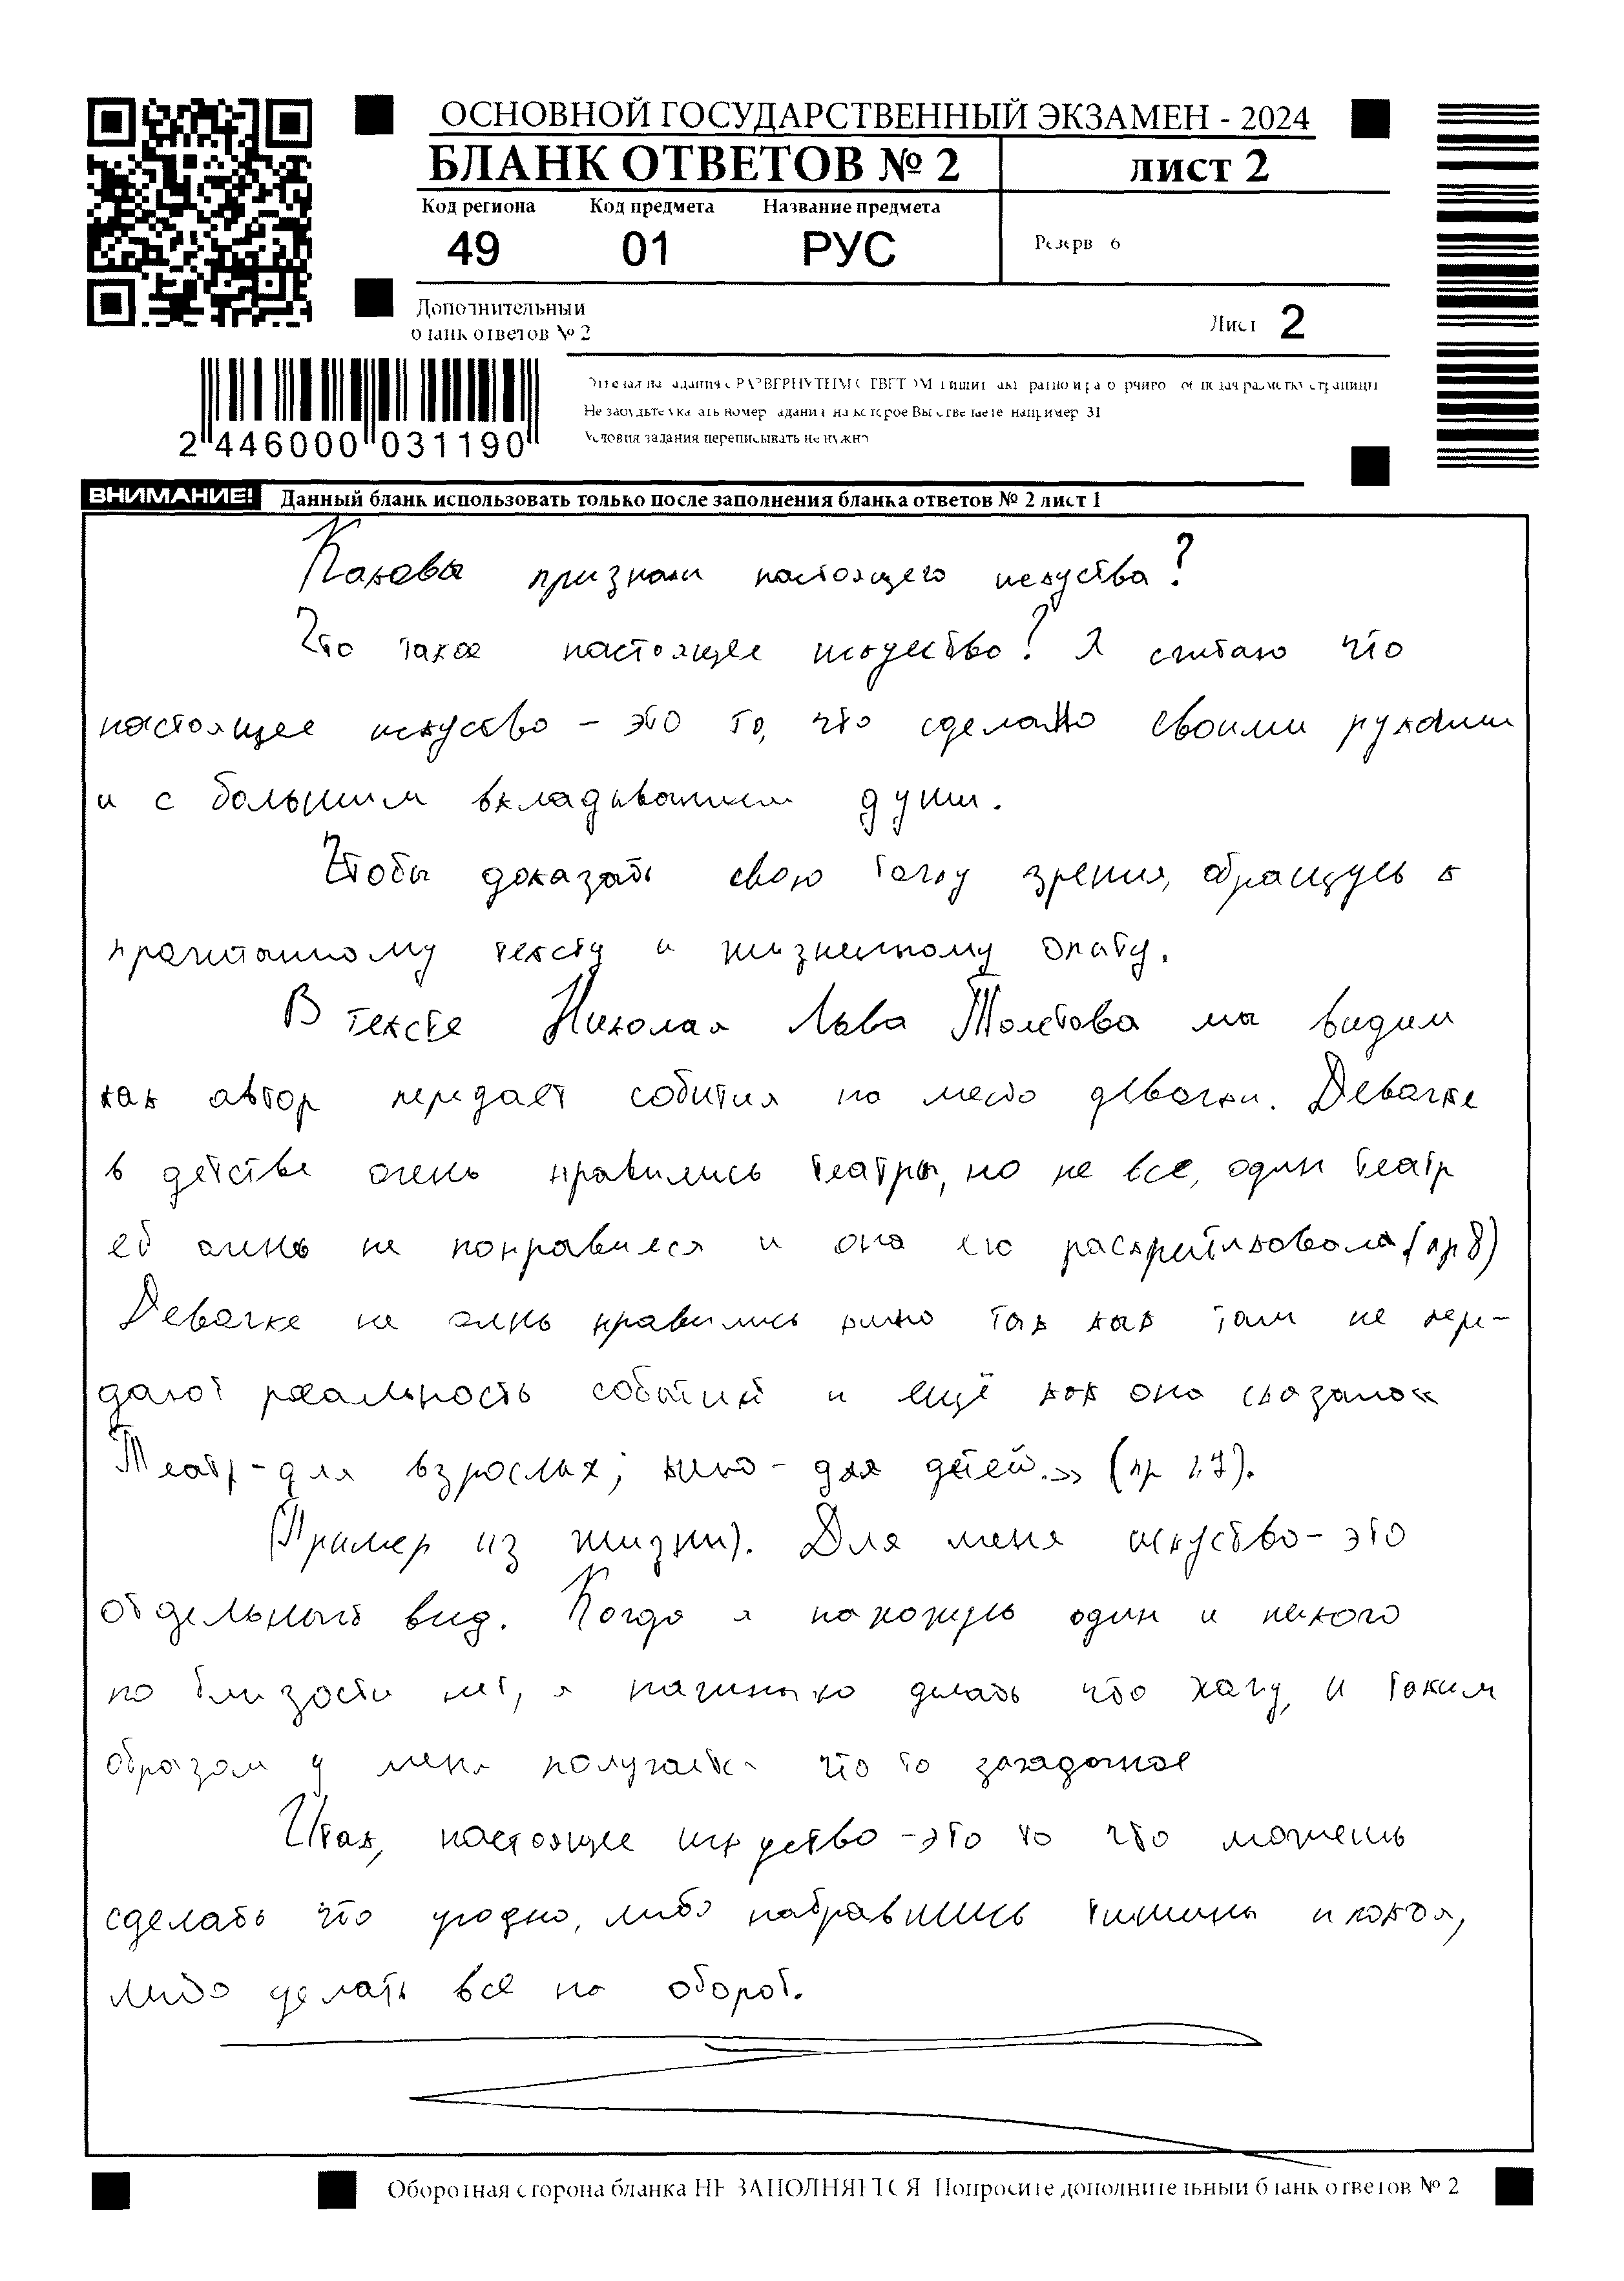 ОСНОВНОЙ ГОСУДАРСТВЕННЫЙ ЭКЗАМЕН - 2024
БЛАНК ОТВЕТОВ № 2
лист 2
Код региона Код предмета Название предмета
49 01 РУС
Резерв 6
Дополнительный
бланк ответов № 2
Лист 2
Не забудьте указать номер задания на которое Вы отвечаете например 31
Условия задания переписывать не нужно
2 446000 031190
ВНИМАНИЕ! Данный бланк использовать только после заполнения бланка ответов № 2 лист 1
Каковы признаки настоящего искуства?
Что такое настоящее искуство? Я считаю что
настоящее искуство – это то, что сделанно своими руками
и с большим вкладыванием души.
Чтобы доказать свою точку зрения, обращусь к
прочитанному тексту и жизненному опыту.
В тексте Николая Льва Толстова мы видим
как автор передает события на место девочки. Девочке
в детстве очень нравились театры, но не все, один театр
ей очень не понравился и она его раскритиковала (пр 8)
Девочке не очень нравились кино так как там не пере-
дают реальность событий и ещё как она сказала «
Театр - для взрослых; кино - для детей.» (пр 17).
(Пример из жизни). Для меня искуство - это
отдельный вид. Когда я нахожусь один и некого
по близости нет, я начинаю делать что хочу, и таким
образом у меня получается что то загадочное
Итак, настоящее искуство - это то что можешь
сделать что угодно, либо набравшись тишины и покоя,
либо делать всё на оборот.
Оборотная сторона бланка НЕ ЗАПОЛНЯЕТСЯ Попросите дополнительный бланк ответов № 2